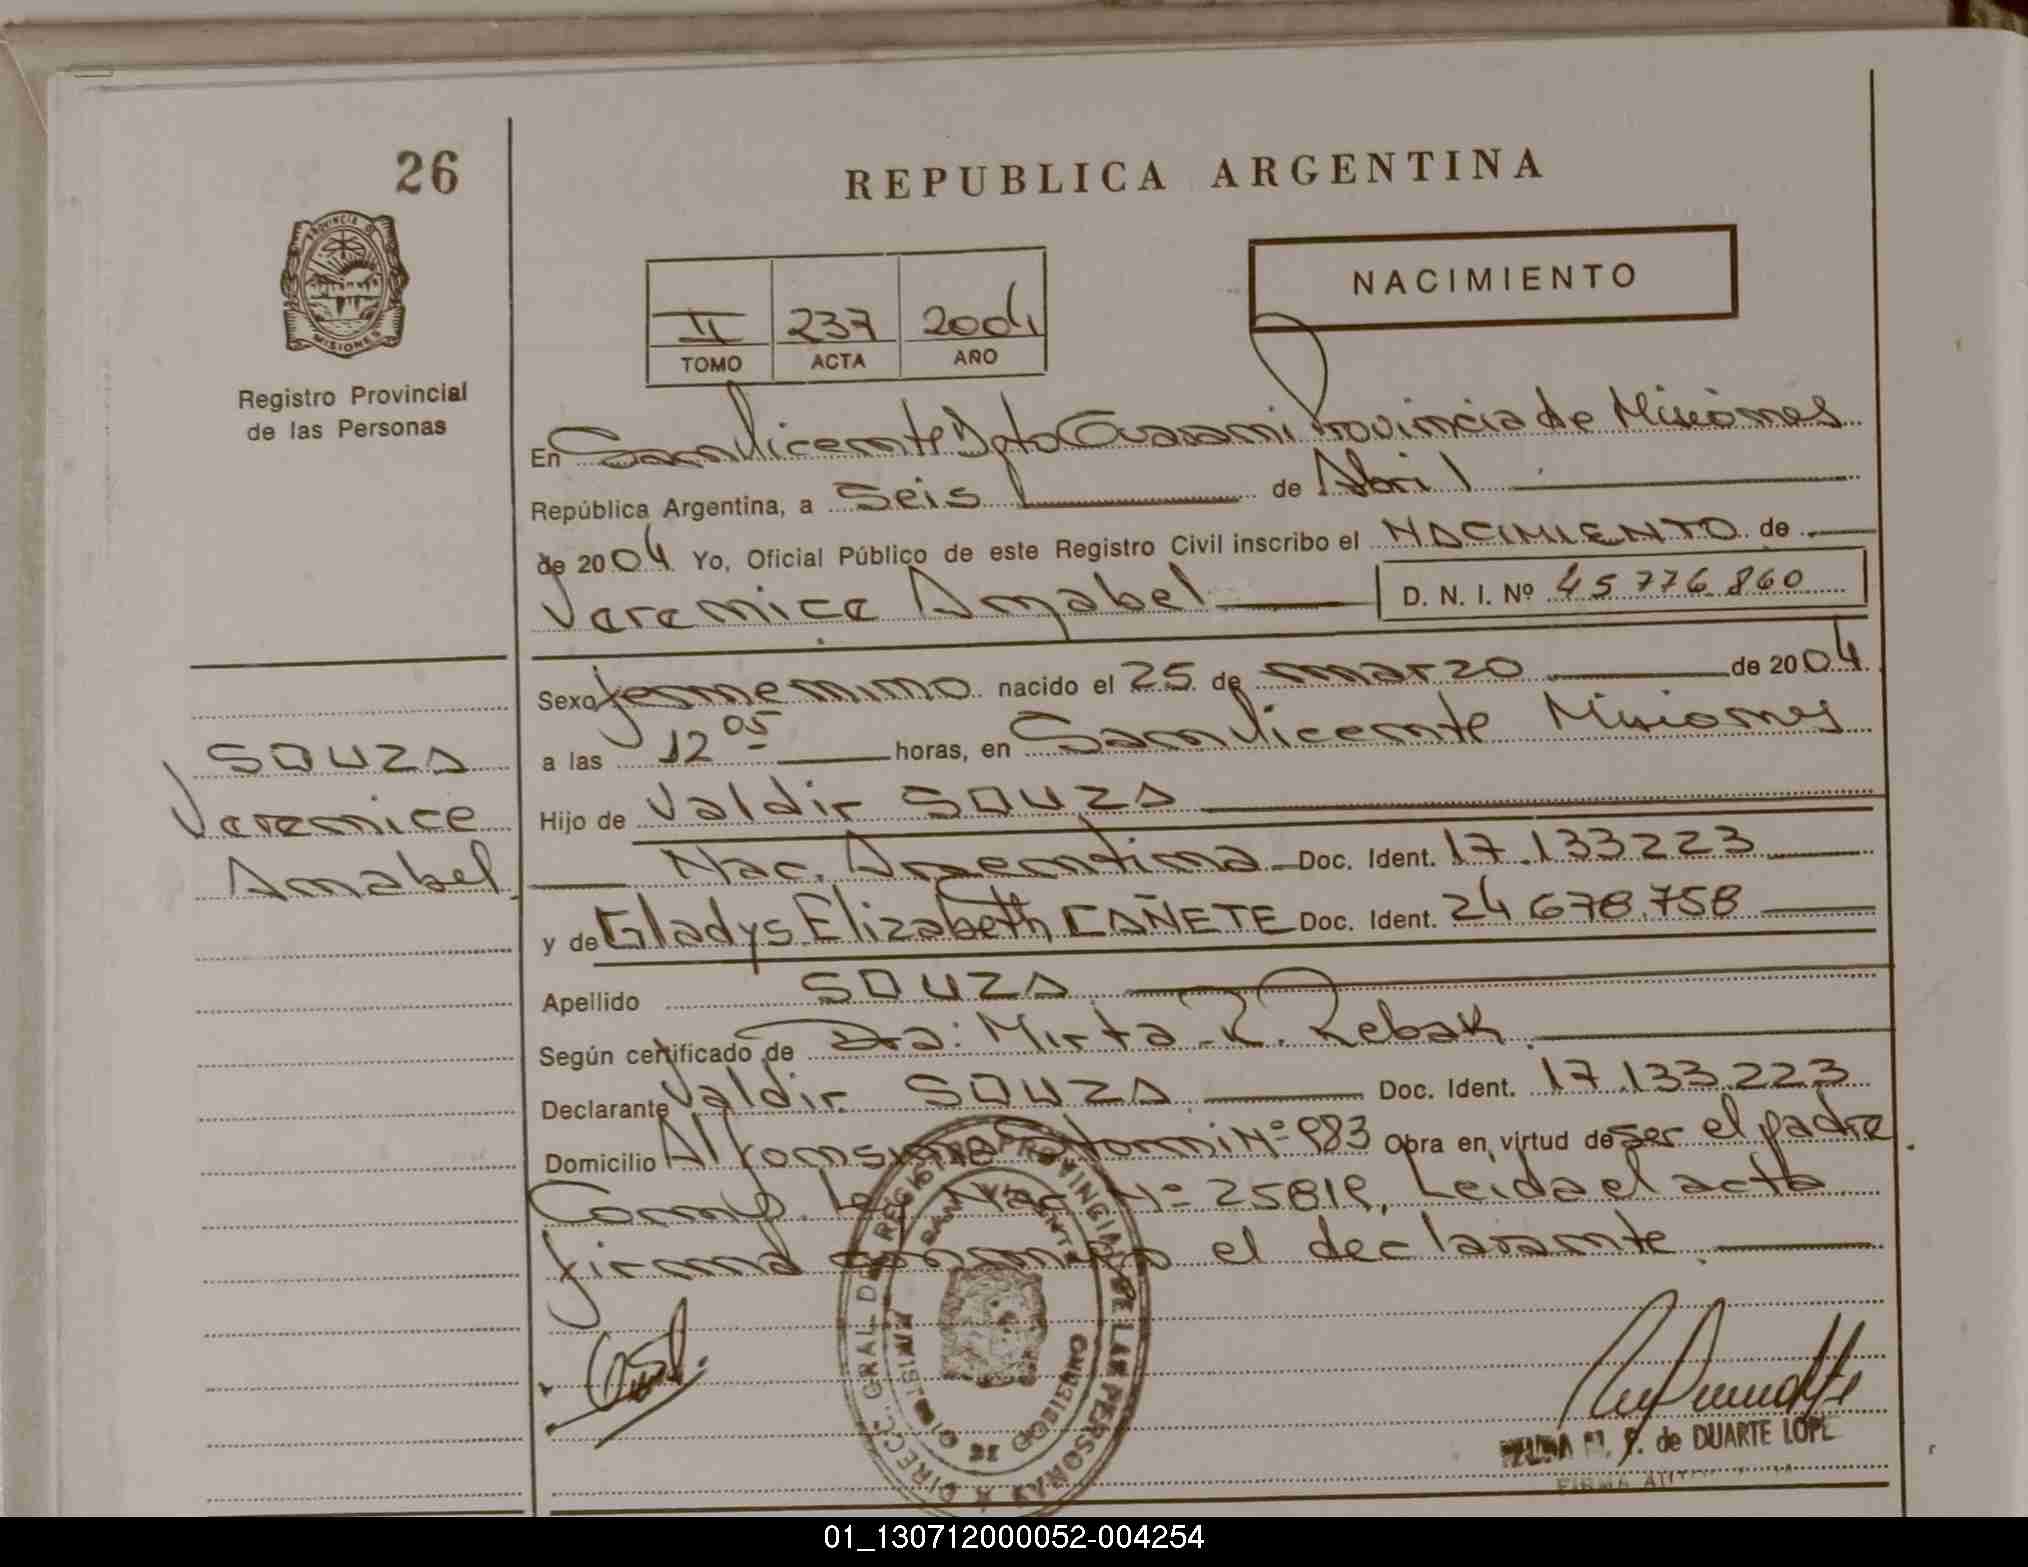 26
REPUBLICA ARGENTINA
PROVINCIA DE
MISIONES
Registro Provincial
de las Personas
NACIMIENTO
II 237 2004
TOMO ACTA AÑO
En San Vicente Dpto Guarani Provincia de Misiones
República Argentina, a Seis de Abril
de 2004 Yo, Oficial Público de este Registro Civil inscribo el NACIMIENTO de
Verenice Anabel D. N. I. Nº 45 776 860
Sexo femenino nacido el 25 de marzo de 2004
a las 12 05 horas, en San Vicente Misiones
SOUZA
Verenice
Anabel
Hijo de Valdir SOUZA
Nac. Argentina Doc. Ident. 17.133223
y de Gladys Elizabeth CAÑETE Doc. Ident. 24 678.758
Apellido SOUZA
Según certificado de Dra: Mirta R. Rebak
Declarante Valdir SOUZA Doc. Ident. 17.133.223
Domicilio Alfonsina Storni Nº 983 Obra en virtud de ser el padre
Conf. Ley Nac Nº 25819, Leida el acta
firma conmigo el declarante.
DIRECC. GRAL. DEL REGISTRO PROVINCIAL DE LAS PERSONAS
SAN VICENTE
MINISTERIO DE GOBIERNO
M. F. de DUARTE LOPE
FIRMA
01_130712000052-004254